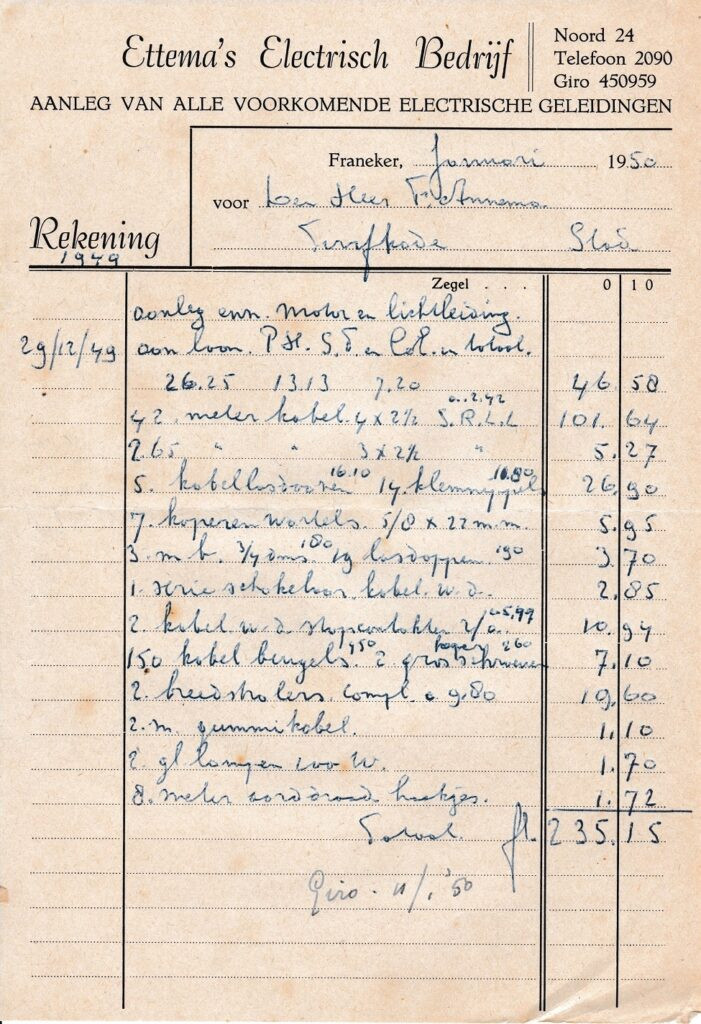 Ettema's Electrisch Bedrijf
Noord 24
Telefoon 2090
Giro 450959
AANLEG VAN ALLE VOORKOMENDE ELECTRISCHE GELEIDINGEN
Franeker, Januari 1950
voor Den Heer F. Annema
Rekening
Turfkade Stad
1949
Zegel . . . 0 10
aanleg enn. motor en lichtleiding.
29/12/49 aan loon. P.H. S.T. en C.E. in totaal.
26.25 13.13 7.20 46.58
a. 2.42
42 meter kabel 4 x 2½ S.R.L.L 101.64
2.65 " " 3 x 2½ " 5.27
16.10 10.80
5. kabellasdoozen 14 klemnippels 26.90
7. koperen wartels. 5/8 x 22 m.m. 5.95
180 190
3. m b. 3/4 dms. 19 lasdoppen. 3.70
1. serie schakelaar kabel w.d. 2.85
a 5,47
2. kabel w.d. stopcontakten 2/a. 10.94
450 koper 260
150 kabel beugels. 2 gros schroeven 7.10
2. breedstralers. compl. a 9.80 19.60
2. m. gummikabel. 1.10
2. gl lampen 100 W. 1.70
8. meter aarddraad haakjes. 1.72
Totaal fl. 235.15
Giro - 11/1 '50